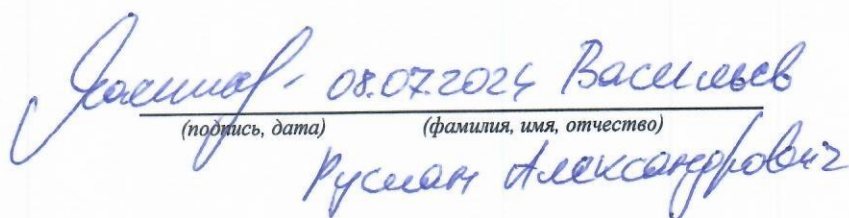 08.07.2024 Васильев
(подпись, дата) (фамилия, имя, отчество)
Руслан Александрович